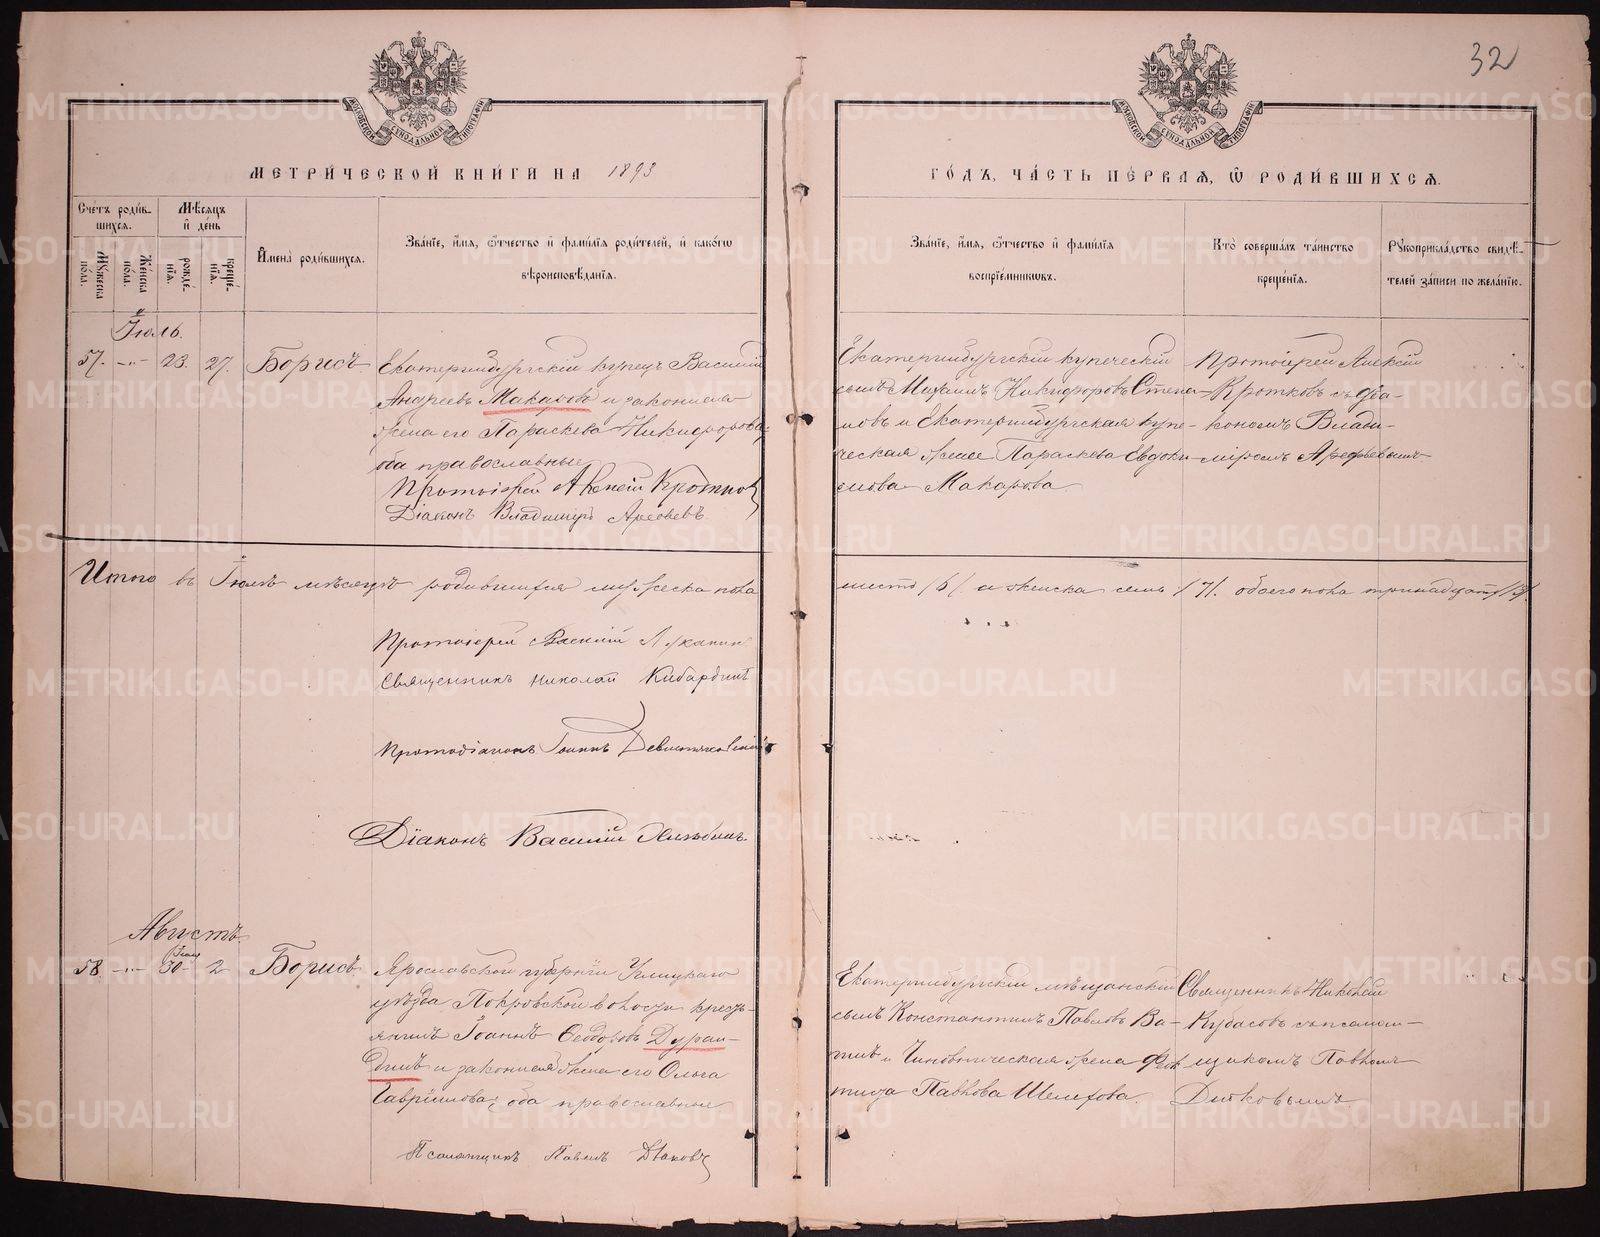 32
МЕТРИ́ЧЕСКОЙ КНИ́ГИ НА 1893
ГО́ДЪ, ЧА́СТЬ ПЕ́РВАЯ, Ѿ РОДИ́ВШИХСЯ.
Сче́тъ роди́в-
шихся.
Мѣ́сяцъ
и́ де́нь
Му́жеска по́ла.
Же́нска по́ла.
рожде́-
нїя.
креще́-
нїя.
И҆мена̀ роди́вшихся.
Зва́нїе, и҆́мя, ѻ҆́тчество и҆ фами́лїя роди́телей, и҆ како́гѡ
вѣроисповѣ́данїя.
Зва́нїе, и҆́мя, ѻ҆́тчество и҆ фами́лїя
воспрїе́мникѡвъ.
Кто̀ соверша́лъ та́инство
креще́нїя.
Рꙋкоприкла́дство свидѣ́-
телей за́писи по жела́нїю.
Іюль.
57. -"- 23. 27. Борисъ
Екатеринбургскій купецъ Василій
Андреевъ Макаровъ и законная
жена его Параскева Никифорова,
оба православные
Протоіерей Алексій Кротковъ
Діаконъ Владиміръ Арефьевъ.
Екатеринбургскій купеческій
сынъ Михаилъ Никифоровъ Степа-
новъ и Екатеринбургская купе-
ческая жена Параскева Евдоки-
мова Макарова.
Протоіерей Алексій
Кротковъ съ діа-
кономъ Влади-
міромъ Арефьевымъ
Итого въ Іюлѣ мѣсяцѣ родившихся мужеска пола
шесть /6/ а женска семь /7/. обоего пола тринадцать /13/.
Протоіерей Василій Луканин
Священникъ Николай Кибардинъ
Протодіаконъ Іоаннъ
Діаконъ Василій Хлѣбинъ.
Августъ.
58. -"- Іюля 30 2 Борисъ
Ярославской губерніи Углицкаго
уѣзда Покровской волости кресть-
янинъ Іоаннъ Феодоровъ Дуран-
динъ и законная жена его Ольга
Гавріилова, оба православные
Псаломщикъ Павелъ Дьяковъ
Екатеринбургскій мѣщанскій
сынъ Константинъ Павловъ Ва-
тинъ и Чиновническая жена Фек-
тиза Павлова Шелехова
Священникъ Николай
Кубасовъ съ псалом-
щикомъ Павломъ
Дьяковымъ.
METRIKI.GASO-URAL.RU